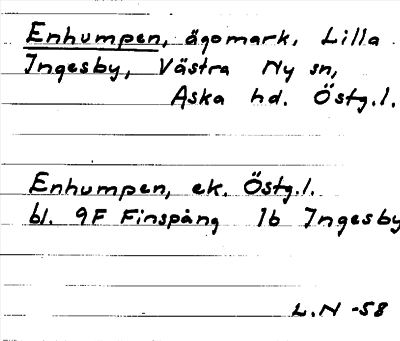 Enhumpen, ägomark, Lilla
Ingesby, Västra Ny sn,
Aska hd. Östg.l.
Enhumpen, ek. Östg.l.
bl. 9F Finspång 1b Ingesby
L.N -58